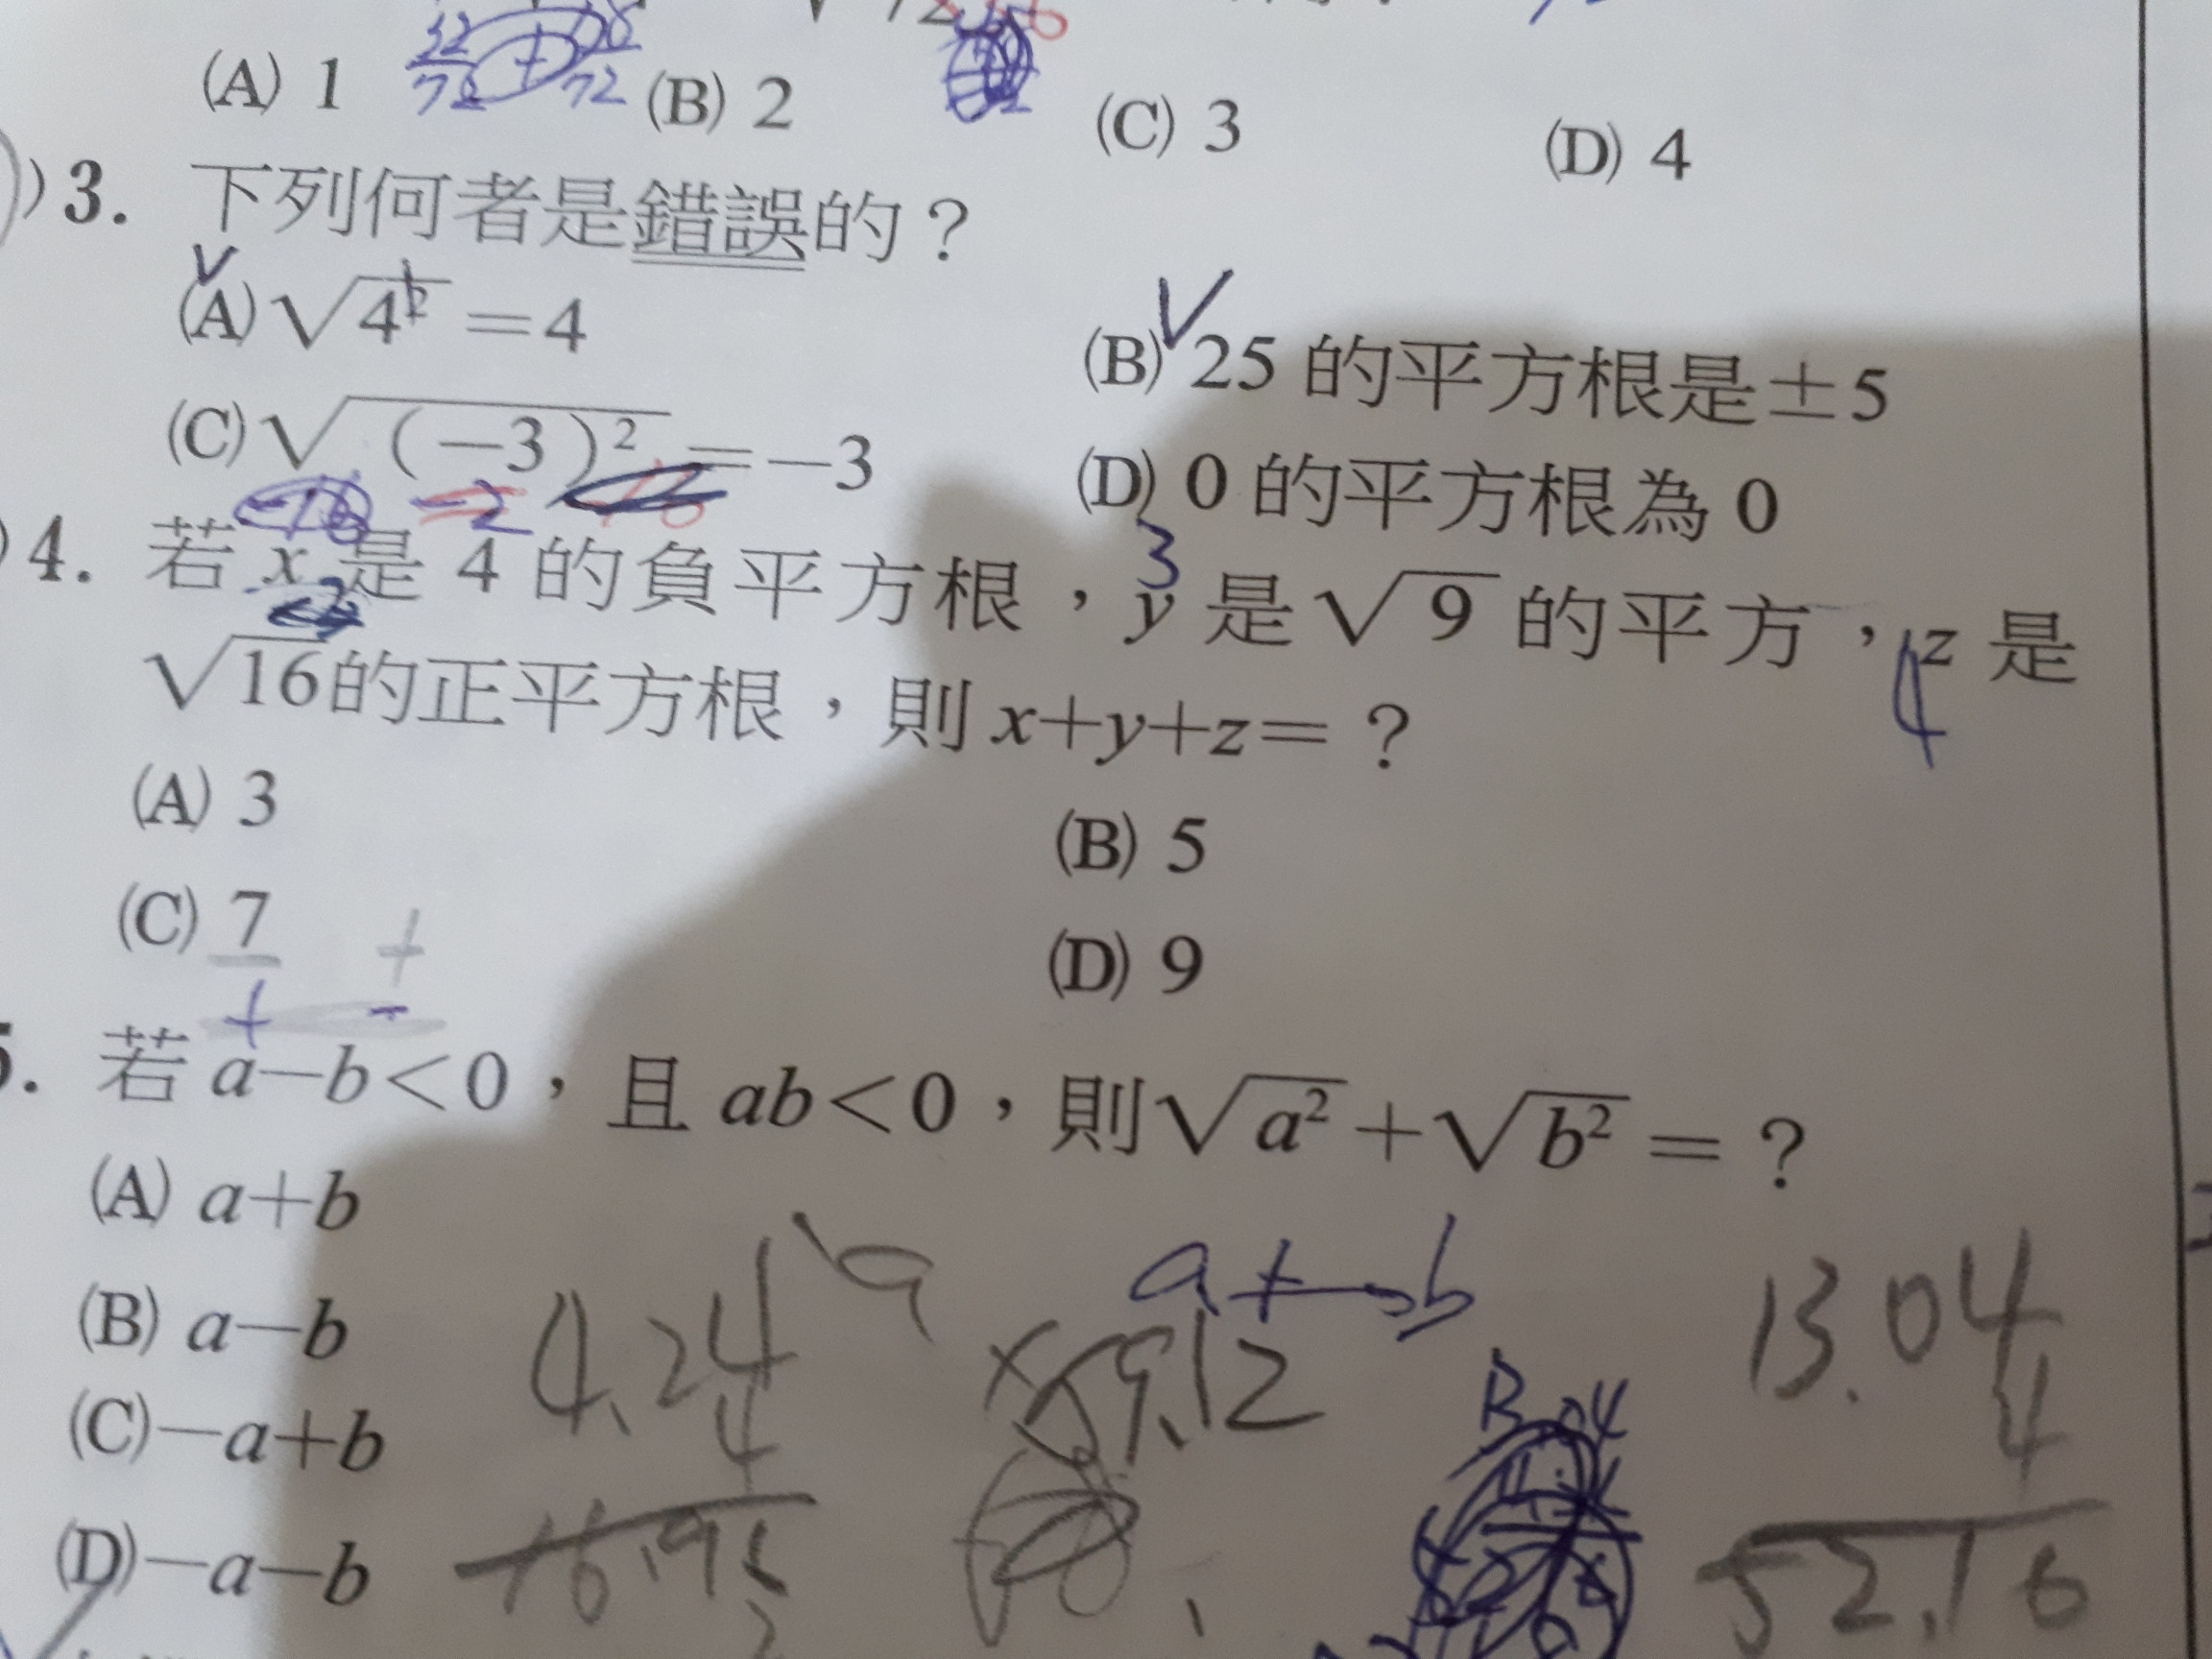 (A) 1 (B) 2 (C) 3 (D) 4
3. 下列何者是錯誤的？
(A) √4² = 4 (B) 25 的平方根是±5
(C) √(−3)² = −3 (D) 0 的平方根為 0
−2
3
4. 若 x 是 4 的負平方根，y 是 √9 的平方，z 是
4
√16的正平方根，則 x+y+z= ？
(A) 3 (B) 5
(C) 7 (D) 9
+ −
5. 若 a−b<0，且 ab<0，則 √a² + √b² = ？
(A) a+b
(B) a−b
(C) −a+b
(D) −a−b
a+−b
4.24
4
16.96
9.12
13.04
4
52.16